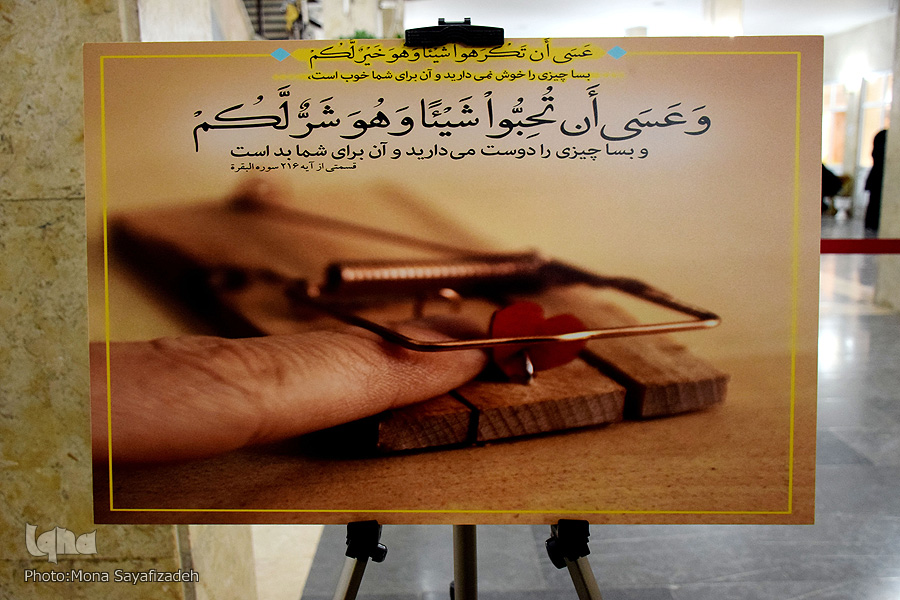 عَسَى أَن تَكْرَهُوا شَيْئًا وَهُوَ خَيْرٌ لَّكُمْ
بسا چیزی را خوش نمی دارید و آن برای شما خوب است،
وَعَسَى أَن تُحِبُّواْ شَيْئًا وَهُوَ شَرٌّ لَّكُمْ
و بسا چیزی را دوست می‌دارید و آن برای شما بد است
قسمتی از آیه ۲۱۶ سوره البقرة
Iqna
Photo:Mona Sayafizadeh